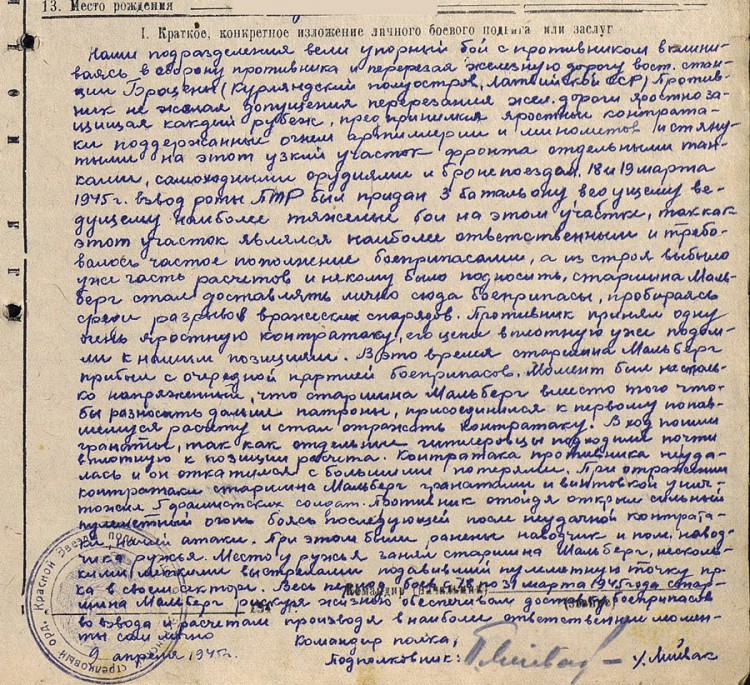 13. Место рождения
I. Краткое, конкретное изложение личного боевого подвига или заслуг
Наши подразделения вели упорный бой с противником вклини-
ваясь в оборону противника и перерезая железную дорогу вост. стан-
ции Броцены (Курляндский полуостров, Латвийской ССР) Против-
ник не желая допущения перерезания жел. дороги яростно за-
щищая каждый рубеж, предпринимая яростные контрата-
ки поддержанные огнем артиллерии и минометов и стяну-
тыми на этот узкий участок фронта отдельными тан-
ками, самоходными орудиями и бронепоездам. 18 и 19 марта
1945 г. взвод роты ПТР был придан 3 батальону ведущему ве-
дущему наиболее тяжелые бои на этом участке, так как
этот участок являлся наиболее ответственным и требо-
валось частое пополнение боеприпасами, а из строя выбыло
уж часть расчетов и некому было подносить, старшина Маль-
берг стал доставлять лично сюда боеприпасы, пробираясь
среди разрывов вражеских снарядов. Противник принял одну
очень яростную контратаку, его цепи вплотную уже подош-
ли к нашим позициям. В это время старшина Мальберг
прибыл с очередной партией боеприпасов. Момент был настоль-
ко напряженный, что старшина Мальберг вместо того что-
бы разносить дальше патроны, присоединился к первому попав-
шемуся расчету и стал отражать контратаку. В ход пошли
гранаты, так как отдельные гитлеровцы подходили почти
вплотную к позиции расчета. Контратака противника неуда-
лась и он откатился с большими потерями. При отражении
контратаки старшина Мальберг гранатами и винтовкой унич-
тожил солдат. Противник отойдя открыл сильный
пулеметный огонь боясь последующей после неудачной контрата-
ки, нашей атаки. При этом были ранены наводчик и пом. навод-
чика ружья. Место у ружья занял старшина Мальберг, несколь-
кими меткими выстрелами подавивший пулеметную точку пр-
ка в своем секторе. Весь период боев с по марта 1945 года стар-
шина Мальберг рискуя жизнью обеспечивал доставку боеприпасов
во взвода и расчетам производя в наиболее ответственные момен-
ты сам лично
Командир (начальник)
Командир полка,
9 апреля 1945 г. Подполковник: Лийвак
стрелковый орд. Красной Звезды